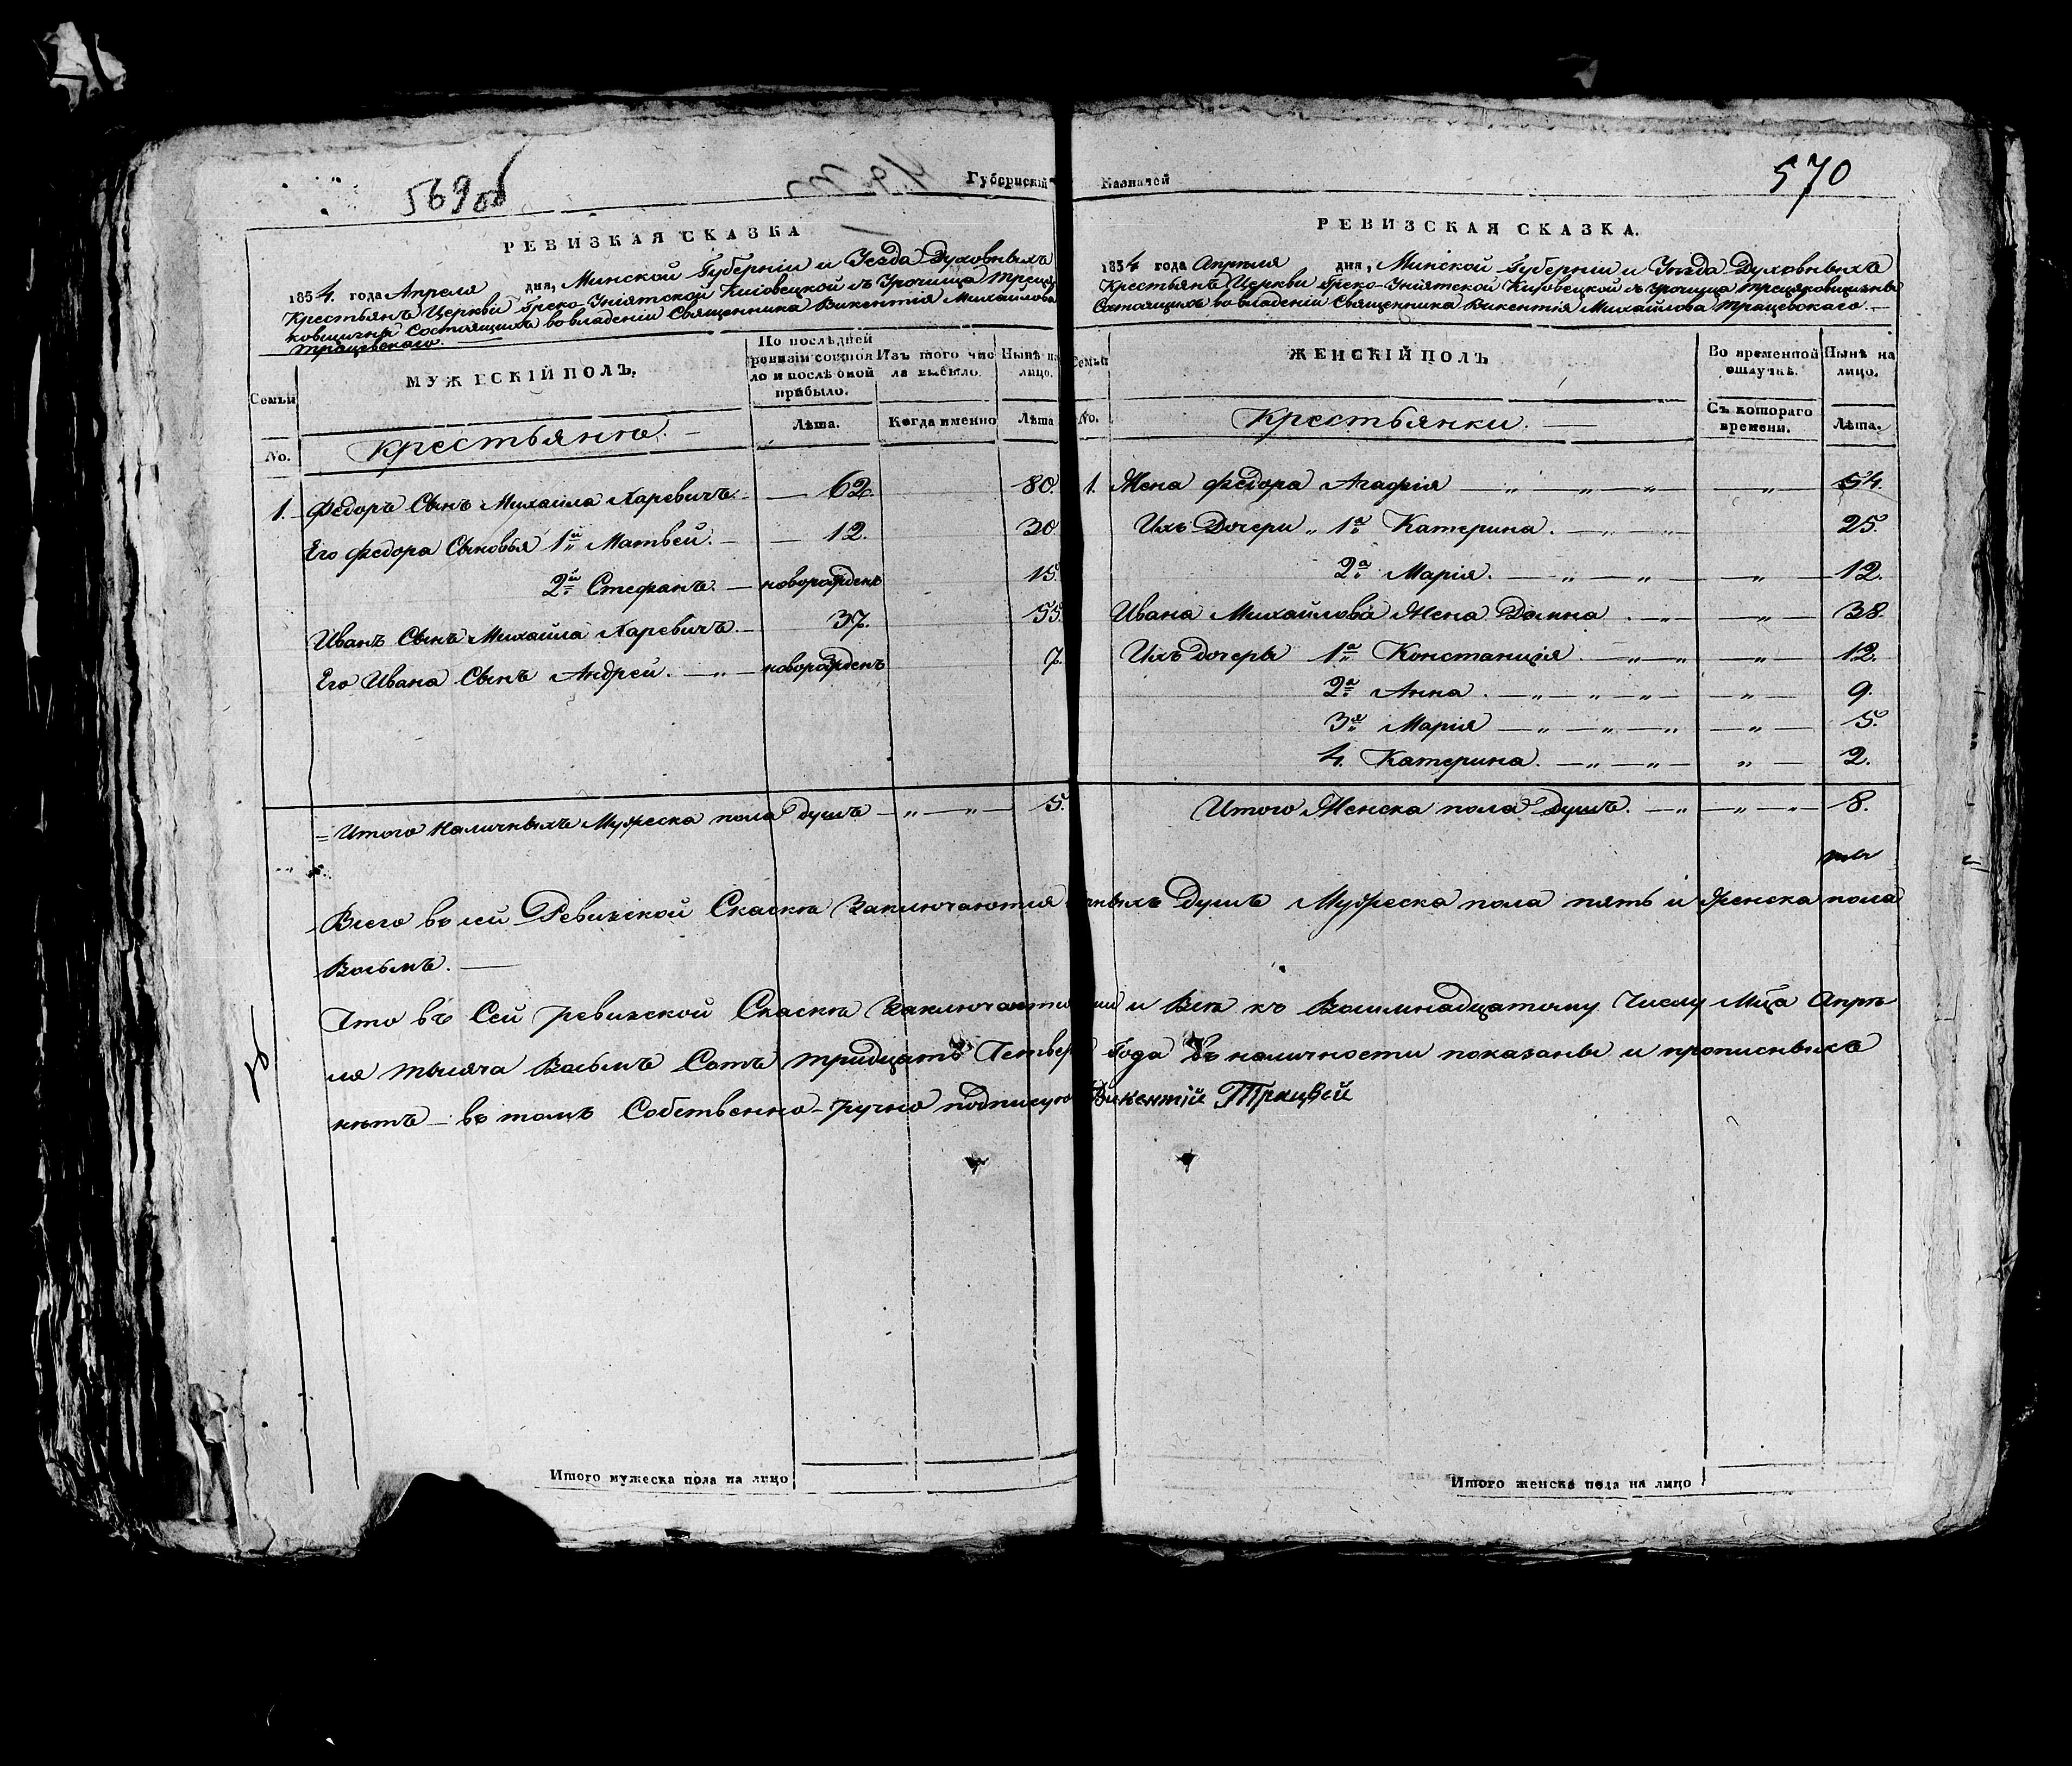 569об
Губернскій
РЕВИЗКАЯ СКАЗКА
1834. года Апреля дня, Минской Губерніи и Уезда Духовныхъ
Крестьянъ Церкви Греко-Уніятской
Состоящихъ во владеніи Священника Викентія Михайлова
Трацевскаго.
Семьи
МУЖЕСКІЙ ПОЛЪ.
По последней ревизіи состояло и после оной прибыло.
Изъ того числа выбыло.
Ныне на лицо.
No.
Крестьяне.
Лѣта.
Когда именно
Лѣта
1. Федоръ Сынъ Михайла Харевичъ. 62. 80.
Его Федора Сыновья 1й Матвей. 12. 30.
2й Стефанъ. новорожденъ 15.
Иванъ Сынъ Михайла Харевичъ. 37. 55.
Его Ивана Сынъ Андрей. новорожденъ 7.
Итого Наличныхъ Мужеска пола душъ 5.
570
Казначей
РЕВИЗСКАЯ СКАЗКА.
1834 года Апреля дня, Минской Губерніи и Уезда Духовныхъ
Крестьянъ Церкви Греко-Уніятской
Состоящихъ во владеніи Священника Викентія Михайлова Трацевскаго.
Семьи
ЖЕНСКІЙ ПОЛЪ
Во временной отлучкѣ.
Нынѣ на лицо.
No.
Крестьянки.
Съ котораго времени.
Лѣта.
1. Жена Федора Агафія 54.
Ихъ Дочери 1а Катерина. 25.
2а Марія. 12.
Ивана Михайлова Жена 38.
Ихъ дочеры 1а Констанція 12.
2а Анна. 9.
3я Марія 5.
4. Катерина. 2.
Итого Женска пола душъ. 8.
Всего въ сей Ревизской Сказке Заключаются душъ Мужеска пола пять и Женска пола
Восьмъ.
Что въ Сей ревизской Сказке и Все къ Восимнадцатому Числу Апре-
ля тысяча Восьмъ Сотъ тридцать Года въ наличности показаны и прописныхъ
нетъ въ томъ Собственно-ручно подписую Викентій
Итого мужеска пола на лицо
Итого женска пола на лицо